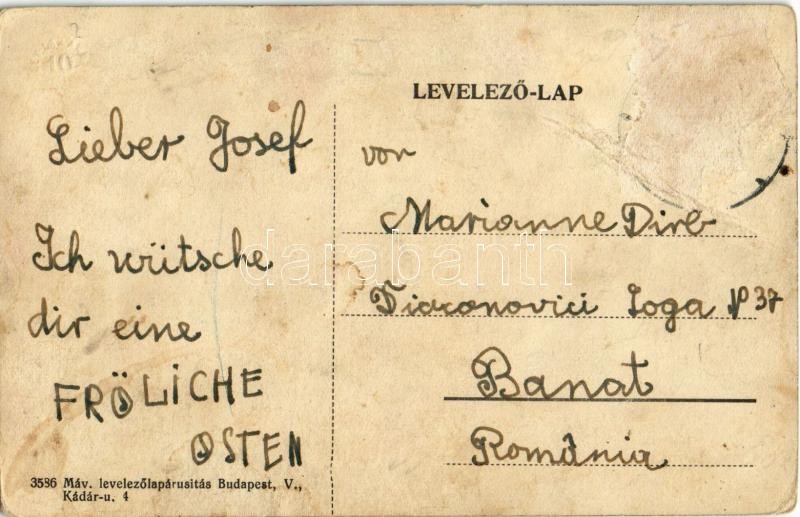 LEVELEZŐ-LAP
Lieber Josef
Ich wütsche
dir eine
FRÖLICHE
OSTEN
von
Marianne Dirb
Diaconovici Loga № 37
Banat
România
3586 Máv. levelezőlapárusitás Budapest, V.,
Kádár-u. 4
darabanth